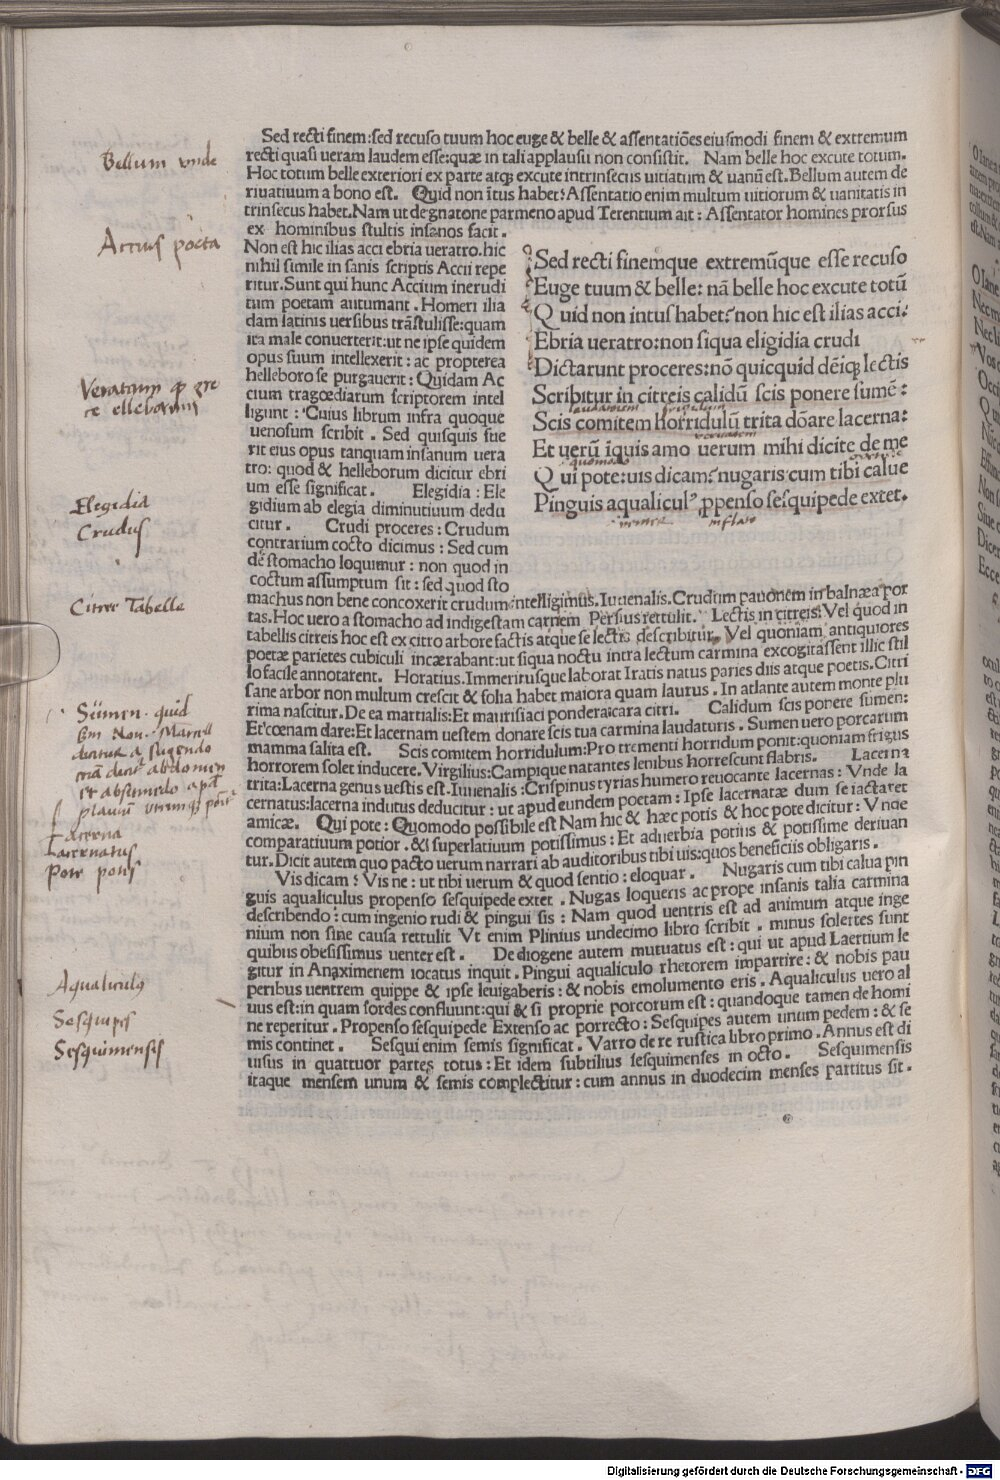 Sed recti finem:sed recuso tuum hoc euge & belle & assentatiões eiusmodi finem & extremum
recti quasi ueram laudem esse:quæ in tali applausu non consistit. Nam belle hoc excute totum.
Hoc totum belle exteriori ex parte atqȝ excute intrinsecus uitiatum & uanũ est. Bellum autem de
riuatiuum a bono est. Quid non ĩtus habet? Assentatio enim multum uitiorum & uanitatis in
trinsecus habet. Nam ut de gnatone parmeno apud Terentium ait: Assentator homines prorsus
ex hominibus stultis insanos facit.
Non est hic ilias acci ebria ueratro. hic
nihil simile in sanis scriptis Accii repe
ritur. Sunt qui hunc Accium inerudi
tum poetam autumant. Homeri ilia
dam latinis uersibus trãstulisse:quam
ita male conuerterit:ut ne ipse quidem
opus suum intellexerit: ac propterea
helleboro se purgauerit: Quidam Ac
cium tragœdiarum scriptorem intel
ligunt: Cuius librum infra quoque
uenosum scribit. Sed quisquis fue
rit eius opus tanquam insanum uera
tro: quod & helleborum dicitur ebri
um esse significat. Elegidia: Ele
gidium ab elegia diminutiuum dedu
citur. Crudi proceres: Crudum
contrarium cocto dicimus: Sed cum
de stomacho loquimur: non quod in
coctum assumptum sit: sed quod sto
Sed recti finemque extremũque esse recuso
Euge tuum & belle: nã belle hoc excute totũ
Quid non intus habet? non hic est ilias acci?
Ebria ueratro: non siqua eligidia crudi
Dictarunt proceres: nõ quicquid dẽiqȝ lectis
Scribitur in citreis calidũ scis ponere sumẽ:
Scis comitem horridulũ trita dõare lacerna:
Et uerũ ĩquis amo uerum mihi dicite de me
Qui pote: uis dicam? nugaris cum tibi calue
Pinguis aqualicul⁹ ꝓpenso sesquipede extet.
machus non bene concoxerit crudum intelligimus. Iuuenalis. Crudum pauonem in balnæa por
tas. Hoc uero a stomacho ad indigestam carnem Persius rettulit. Lectis in citreis: Vel quod in
tabellis citreis hoc est ex citro arbore factis atque se lectis describitur. Vel quoniam antiquiores
poetæ parietes cubiculi incærabant: ut siqua noctu intra lectum carmina excogitassent illic stil
lo facile annotarent. Horatius. Immeritusque laborat Iratis natus paries diis atque poetis. Citri
sane arbor non multum crescit & folia habet maiora quam laurus. In atlante autem monte plu
rima nascitur. De ea martialis: Et maurisiaci pondera cara citri. Calidum scis ponere sumen:
Et cœnam dare: Et lacernam uestem donare scis tua carmina laudaturis. Sumen uero porcarum
mamma salita est. Scis comitem horridulum: Pro trementi horridum ponit: quoniam frigus
horrorem solet inducere. Virgilius: Campique natantes lenibus horrescunt flabris. Lacerna
trita: Lacerna genus uestis est. Iuuenalis: Crispinus tyrias humero reuocante lacernas: Vnde la
cernatus: lacerna indutus deducitur: ut apud eundem poetam: Ipse lacernatæ dum se iactaret
amicæ. Qui pote: Quomodo possibile est Nam hic & hæc potis & hoc pote dicitur: Vnde
comparatiuum potior. & superlatiuum potissimus: Et aduerbia potius & potissime deriuan
tur. Dicit autem quo pacto uerum narrari ab auditoribus tibi uis: quos beneficiis obligaris.
Vis dicam? Vis ne: ut tibi uerum & quod sentio: eloquar. Nugaris cum tibi calua pin
guis aqualiculus propenso sesquipede extet. Nugas loqueris ac prope insanis talia carmina
describendo: cum ingenio rudi & pingui sis: Nam quod uentris est ad animum atque inge
nium non sine causa rettulit Vt enim Plinius undecimo libro scribit. minus solertes sunt
quibus obesissimus uenter est. De diogene autem mutuatus est: qui ut apud Laertium le
gitur in Anaximenem iocatus inquit. Pingui aqualiculo rhetorem impartire: & nobis pau
peribus uentrem quippe & ipse leuigaberis: & nobis emolumento eris. Aqualiculus uero al
uus est: in quam sordes confluunt: qui & si proprie porcorum est: quandoque tamen de homi
ne reperitur. Propenso sesquipede Extenso ac porrecto: Sesquipes autem unum pedem: & se
mis continet. Sesqui enim semis significat. Varro de re rustica libro primo. Annus est di
uisus in quattuor partes totus: Et idem subtilius sesquimenses in octo. Sesquimensis
itaque mensem unum & semis complectitur: cum annus in duodecim menses partitus sit.
Bellum vnde
Accius poeta
Veratrum
elleborum
Elegidia
Crudus
Citree Tabelle
Sumen quid
Lacerna
Lacernatus
Pote potis
Aqualiculus
Sesquipes
Sesquimensis
Digitalisierung gefördert durch die Deutsche Forschungsgemeinschaft - DFG